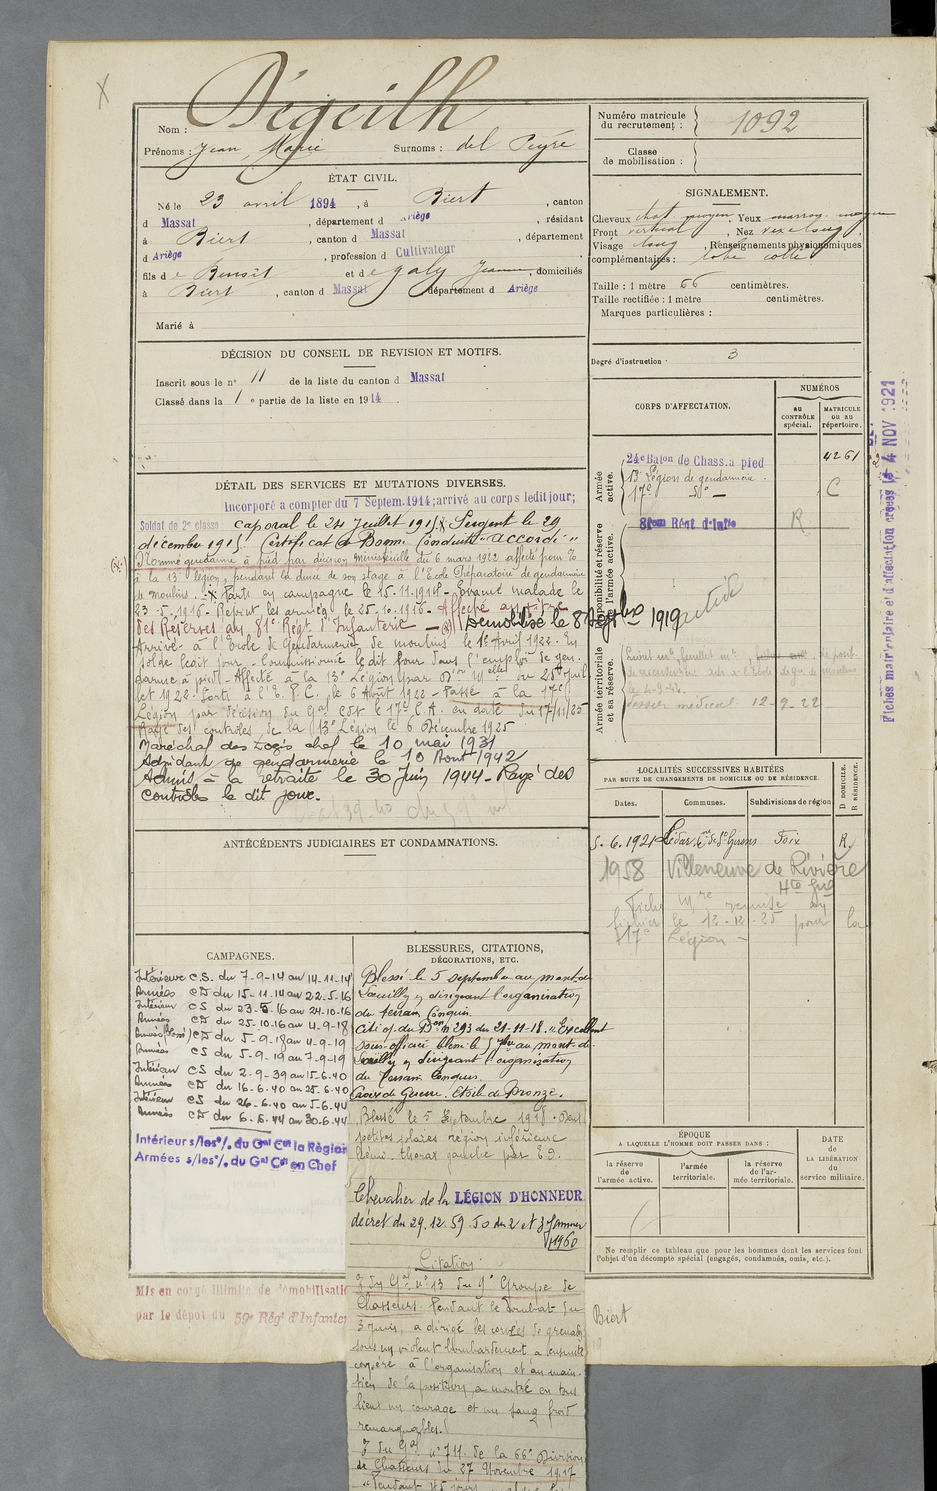 Nom : Dégeilh
Prénoms : Jean Marie Surnoms : del Peyré
Numéro matricule du recrutement : 1092
Classe de mobilisation :
ÉTAT CIVIL.
Né le 23 avril 1894, à Biert, canton
d Massat, département d Ariège, résidant
à Biert, canton d Massat, département
d Ariège, profession d Cultivateur
fils de Benoit et de Galy Jeanne, domiciliés
à Biert, canton d Massat département d Ariège
Marié à
SIGNALEMENT.
Cheveux chat. moyen Yeux marron moyen
Front vertical, Nez
Visage long, Renseignements physionomiques
complémentaires : lobe collé
Taille : 1 mètre 66 centimètres.
Taille rectifiée : 1 mètre centimètres.
Marques particulières :
Degré d'instruction : 3
DÉCISION DU CONSEIL DE REVISION ET MOTIFS.
Inscrit sous le n° 11 de la liste du canton d Massat
Classé dans la 1e partie de la liste en 1914
DÉTAIL DES SERVICES ET MUTATIONS DIVERSES.
Incorporé a compter du 7 Septem. 1914; arrivé au corps ledit jour;
Soldat de 2e classe caporal le 24 Juillet 1915 Sergent le 29
décembre 1915. Certificat de Bonne Conduite "accordé"
Nommé gendarme à pied par décision ministérielle du 6 mars 1922 affecté
à la 13e légion, pendant la durée de son stage à l'Ecole Préparatoire de gendarmerie
de Moulins. Parti en campagne le 15-11-1914. Evacué malade le
23-5-1916. Rejoint les armées le 25-10-1916. Affecté
des Réserves au 81e Régt d'Infanterie Démobilisé le 8 Septbre 1919
Arrivé à l'Ecole de Gendarmerie de moulins le 1e Avril 1922. En
solde ledit jour. Commissionné le dit jour dans l'emploi de gen-
darme à pied. Affecté à la 13e Légion par Don Melle du 28 Juil-
let 1922. Sorti à l'E.P.G. le 6 Août 1922. Passé à la 17e
Légion par décision du Gal Cdt le 17e C.A. en date du 17/11/25
Rayé des contrôles de la 13e Légion le 6 Décembre 1925
Maréchal des Logis chef le 10 mai 1931
Adjudant de gendarmerie le 10 Aout 1942
Admis à la retraite le 30 Juin 1944. Rayé des
contrôles le dit jour.
CORPS D'AFFECTATION.
NUMÉROS
AU CONTRÔLE spécial.
MATRICULE ou au répertoire.
Armée active.
24e Baton de Chass. a pied 4261
13e Légion de gendarmerie.
17e -do- C
Disponibilité et réserve de l'armée active.
81eme Régt d'Inftie R
Armée territoriale et sa réserve.
Dossier médical 12-9-22
Fiches matriculaire et d'affectation créées le 4 NOV 1921
LOCALITÉS SUCCESSIVES HABITÉES
PAR SUITE DE CHANGEMENTS DE DOMICILE OU DE RÉSIDENCE.
Dates. Communes. Subdivisions de région D DOMICILE. R RÉSIDENCE.
5.6.1921 Lédar, Cne de St Girons Foix R.
1958 Villeneuve de Rivière
Hte Gne
Fiche mre remise au
fichier le 12-12-25 pour la
17e Légion
ANTÉCÉDENTS JUDICIAIRES ET CONDAMNATIONS.
CAMPAGNES.
Intérieur CS. du 7-9-14 au 14-11-14
Armées CD du 15-11-14 au 22-5-16
Intérieur CS du 23-5-16 au 24-10-16
Armées CD du 25-10-16 au 4-9-18
Armées (Blessé) CD du 5-9-18 au 4-9-19
Armées CS du 5-9-19 au 7-9-19
Intérieur CS du 2-9-39 au 15-6-40
Armées CD du 16-6-40 au 25-6-40
Intérieur CS du 26-6-40 au 5-6-44
Armées CD du 6-6-44 au 30-6-44
Intérieur s/les °/. du Gal Cdt la Région
Armées s/les °/. du Gal Cdt en Chef
Mis en congé illimité de démobilisatio
par le dépot du 59e Rég' d'Infanter
BLESSURES, CITATIONS,
DÉCORATIONS, ETC.
Blessé le 5 septembre au mont de
Vauxilly en dirigeant l'organisation
du terrain conquis.
Cité O. du Bon n° 293 du 21-11-18. "Excellent
sous-officier blessé le 5 7bre au mont de
en dirigeant l'organisation
du terrain conquis.
Croix de Guerre. Etoile de Bronze.
Blessé le 5 Septembre 1918. Deux
petites plaies région inférieure
hémi-thorax gauche par E.O.
Chevalier de la LÉGION D'HONNEUR
décret du 29.12.59 JO du 2 et 3 Janvier
1960
Citation
O du Gal n° 13 du 9e Groupe de
Chasseurs. Pendant le combat du
3 juin, a dirigé les corvées de grenades
sous un violent bombardement a ensuite
coopéré à l'organisation et au main-
tien de la position, a montré en tous
lieux un courage et un sang froid
remarquables.
O du Gal n° 711. de la 66e Division
de Chasseurs du 27 Novembre 1917
"Pendant 45 jours
ÉPOQUE
A LAQUELLE L'HOMME DOIT PASSER DANS :
la réserve de l'armée active.
l'armée territoriale.
la réserve de l'armée territoriale.
DATE DE LA LIBÉRATION du service militaire.
Ne remplir ce tableau que pour les hommes dont les services font
l'objet d'un décompte spécial (engagés, condamnés, omis, etc.).
Biert